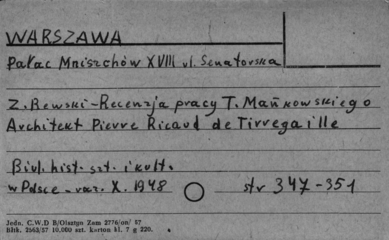 WARSZAWA
Pałac Mniszchów XVIII ul. Senatorska
Z. Rewski - Recenzja pracy T. Mańkowskiego
Architekt Pierre Ricaud de Tirregaille
Biul. hist. szt. i kult.
w Polsce - rocz. X. 1948 str 347-351
Jedn. C.W.D B/Olsztyn Zam 2776/on/ 57
Bibk. 2563/57 10.000 szt. karton kl. 7 g 220.